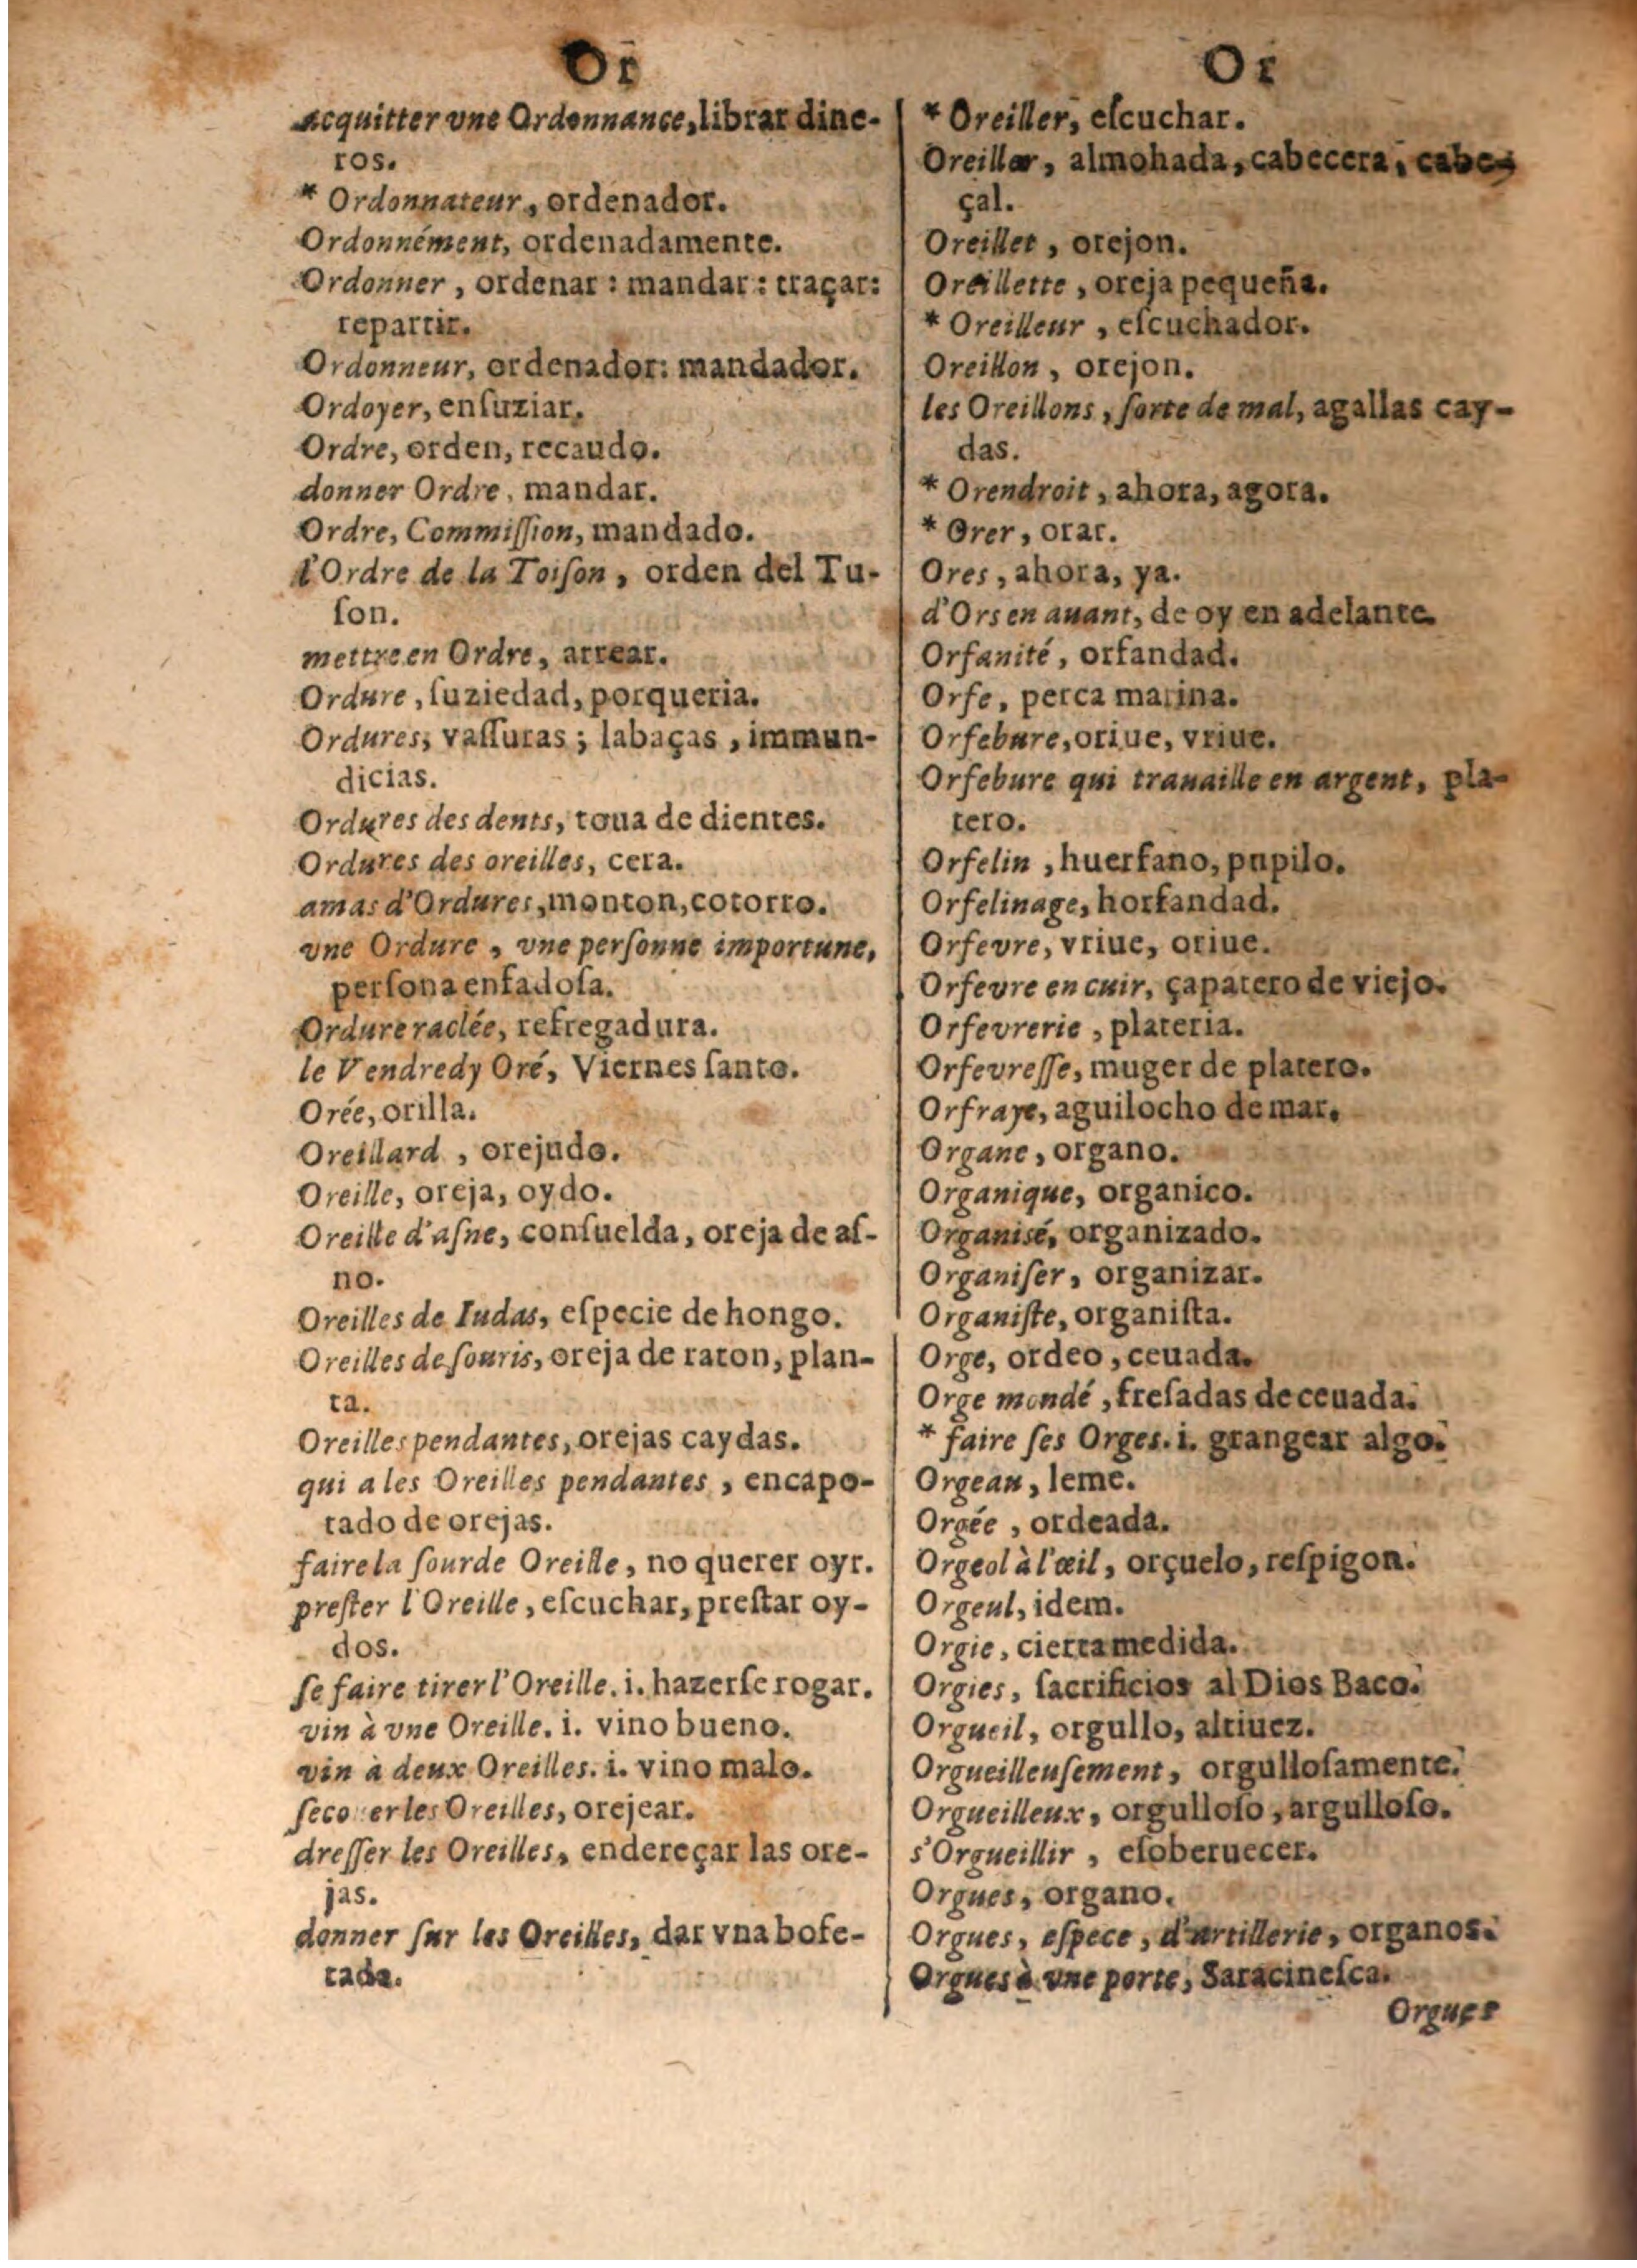 Or
acquitter vne Ordonnance, librar dine-
ros.
* Ordonnateur, ordenador.
Ordonnément, ordenadamente.
Ordonner, ordenar : mandar : traçar:
repartir.
Ordonneur, ordenador: mandador.
Ordoyer, enſuziar.
Ordre, orden, recaudo.
donner Ordre, mandar.
Ordre, Commiſſion, mandado.
l'Ordre de la Toiſon, orden del Tu-
ſon.
mettre en Ordre, arrear.
Ordure, ſuziedad, porqueria.
Ordures, vaſſuras ; labaças, immun-
dicias.
Ordures des dents, toua de dientes.
Ordures des oreilles, cera.
amas d'Ordures, monton, cotorro.
vne Ordure, vne perſonne importune,
perſona enfadoſa.
Ordure raclée, refregadura.
le Vendredy Oré, Viernes ſanto.
Orée, orilla.
Oreillard, orejudo.
Oreille, oreja, oydo.
Oreille d'aſne, conſuelda, oreja de aſ-
no.
Oreilles de Iudas, eſpecie de hongo.
Oreilles de ſouris, oreja de raton, plan-
ta.
Oreilles pendantes, orejas caydas.
qui a les Oreilles pendantes, encapo-
tado de orejas.
faire la ſourde Oreille, no querer oyr.
preſter l'Oreille, eſcuchar, preſtar oy-
dos.
ſe faire tirer l'Oreille. i. hazerſe rogar.
vin à vne Oreille. i. vino bueno.
vin à deux Oreilles. i. vino malo.
les Oreilles, orejear.
dreſſer les Oreilles, endereçar las ore-
jas.
donner ſur les Oreilles, dar vna bofe-
tada.
Or
* Oreiller, eſcuchar.
Oreiller, almohada, cabecera, cabe-
çal.
Oreillet, orejon.
Oreillette, oreja pequeña.
* Oreilleur, eſcuchador.
Oreillon, orejon.
les Oreillons, ſorte de mal, agallas cay-
das.
* Orendroit, ahora, agora.
* Orer, orar.
Ores, ahora, ya.
d'Ors en auant, de oy en adelante.
Orfanité, orfandad.
Orfe, perca marina.
Orfebure, oriue, vriue.
Orfebure qui trauaille en argent, pla-
tero.
Orfelin, huerfano, pupilo.
Orfelinage, horfandad.
Orfevre, vriue, oriue.
Orfevre en cuir, çapatero de viejo.
Orfevrerie, plateria.
Orfevreſſe, muger de platero.
Orfraye, aguilocho de mar.
Organe, organo.
Organique, organico.
Organisé, organizado.
Organiſer, organizar.
Organiſte, organiſta.
Orge, ordeo, ceuada.
Orge mondé, freſadas de ceuada.
* faire ſes Orges. i. grangear algo.
Orgeau, leme.
Orgée, ordeada.
Orgeol à l'œil, orçuelo, reſpigon.
Orgeul, idem.
Orgie, cierta medida.
Orgies, ſacrificios al Dios Baco.
Orgueil, orgullo, altiuez.
Orgueilleuſement, orgulloſamente.
Orgueilleux, orgulloſo, argulloſo.
s'Orgueillir, eſoberuecer.
Orgues, organo.
Orgues, eſpece, d'artillerie, organos.
Orgues à vne porte, Saracineſca.
Orgues